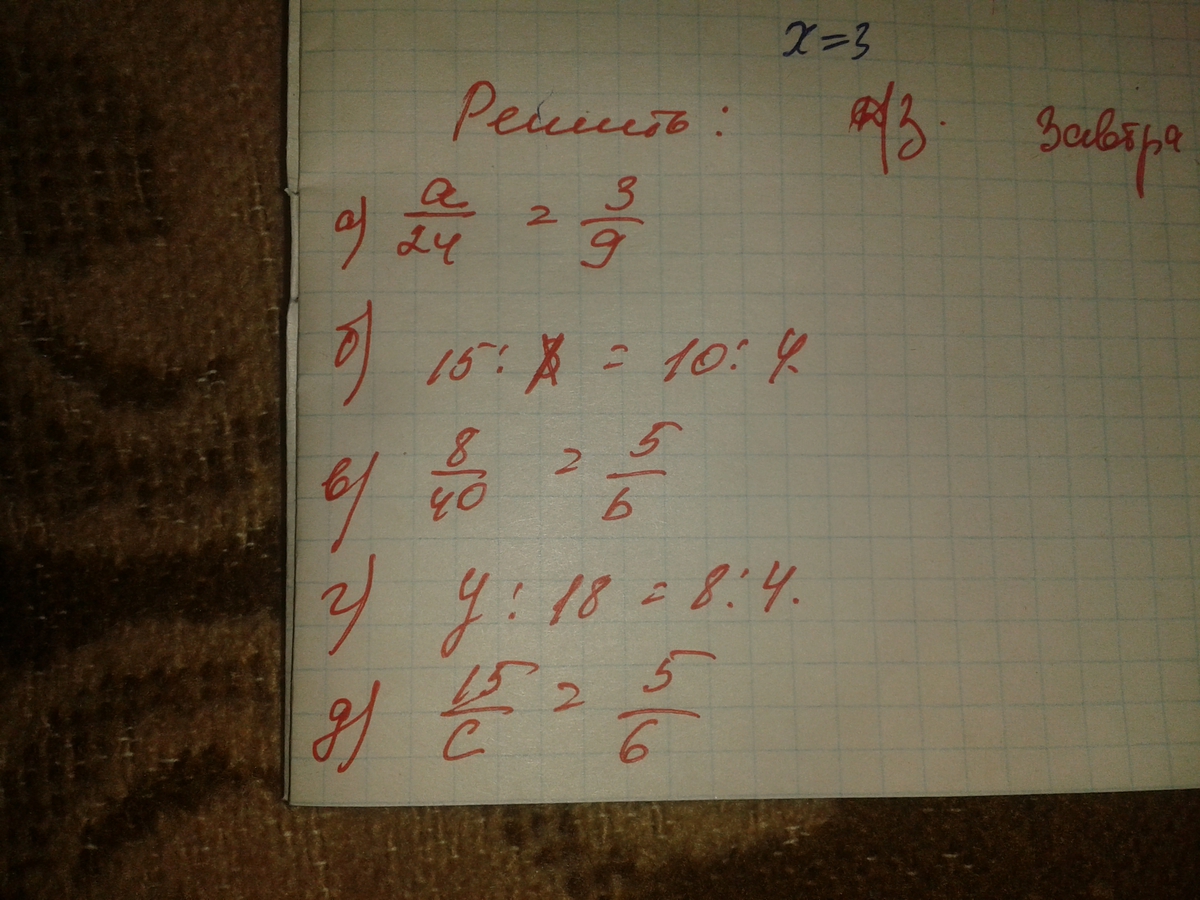 x=3
Решить: Д/З. Завтра
а) a/24 = 3/9
б) 15: = 10:4.
в) 8/40 = 5/б
г) y:18=8:4.
д) 15/c = 5/6